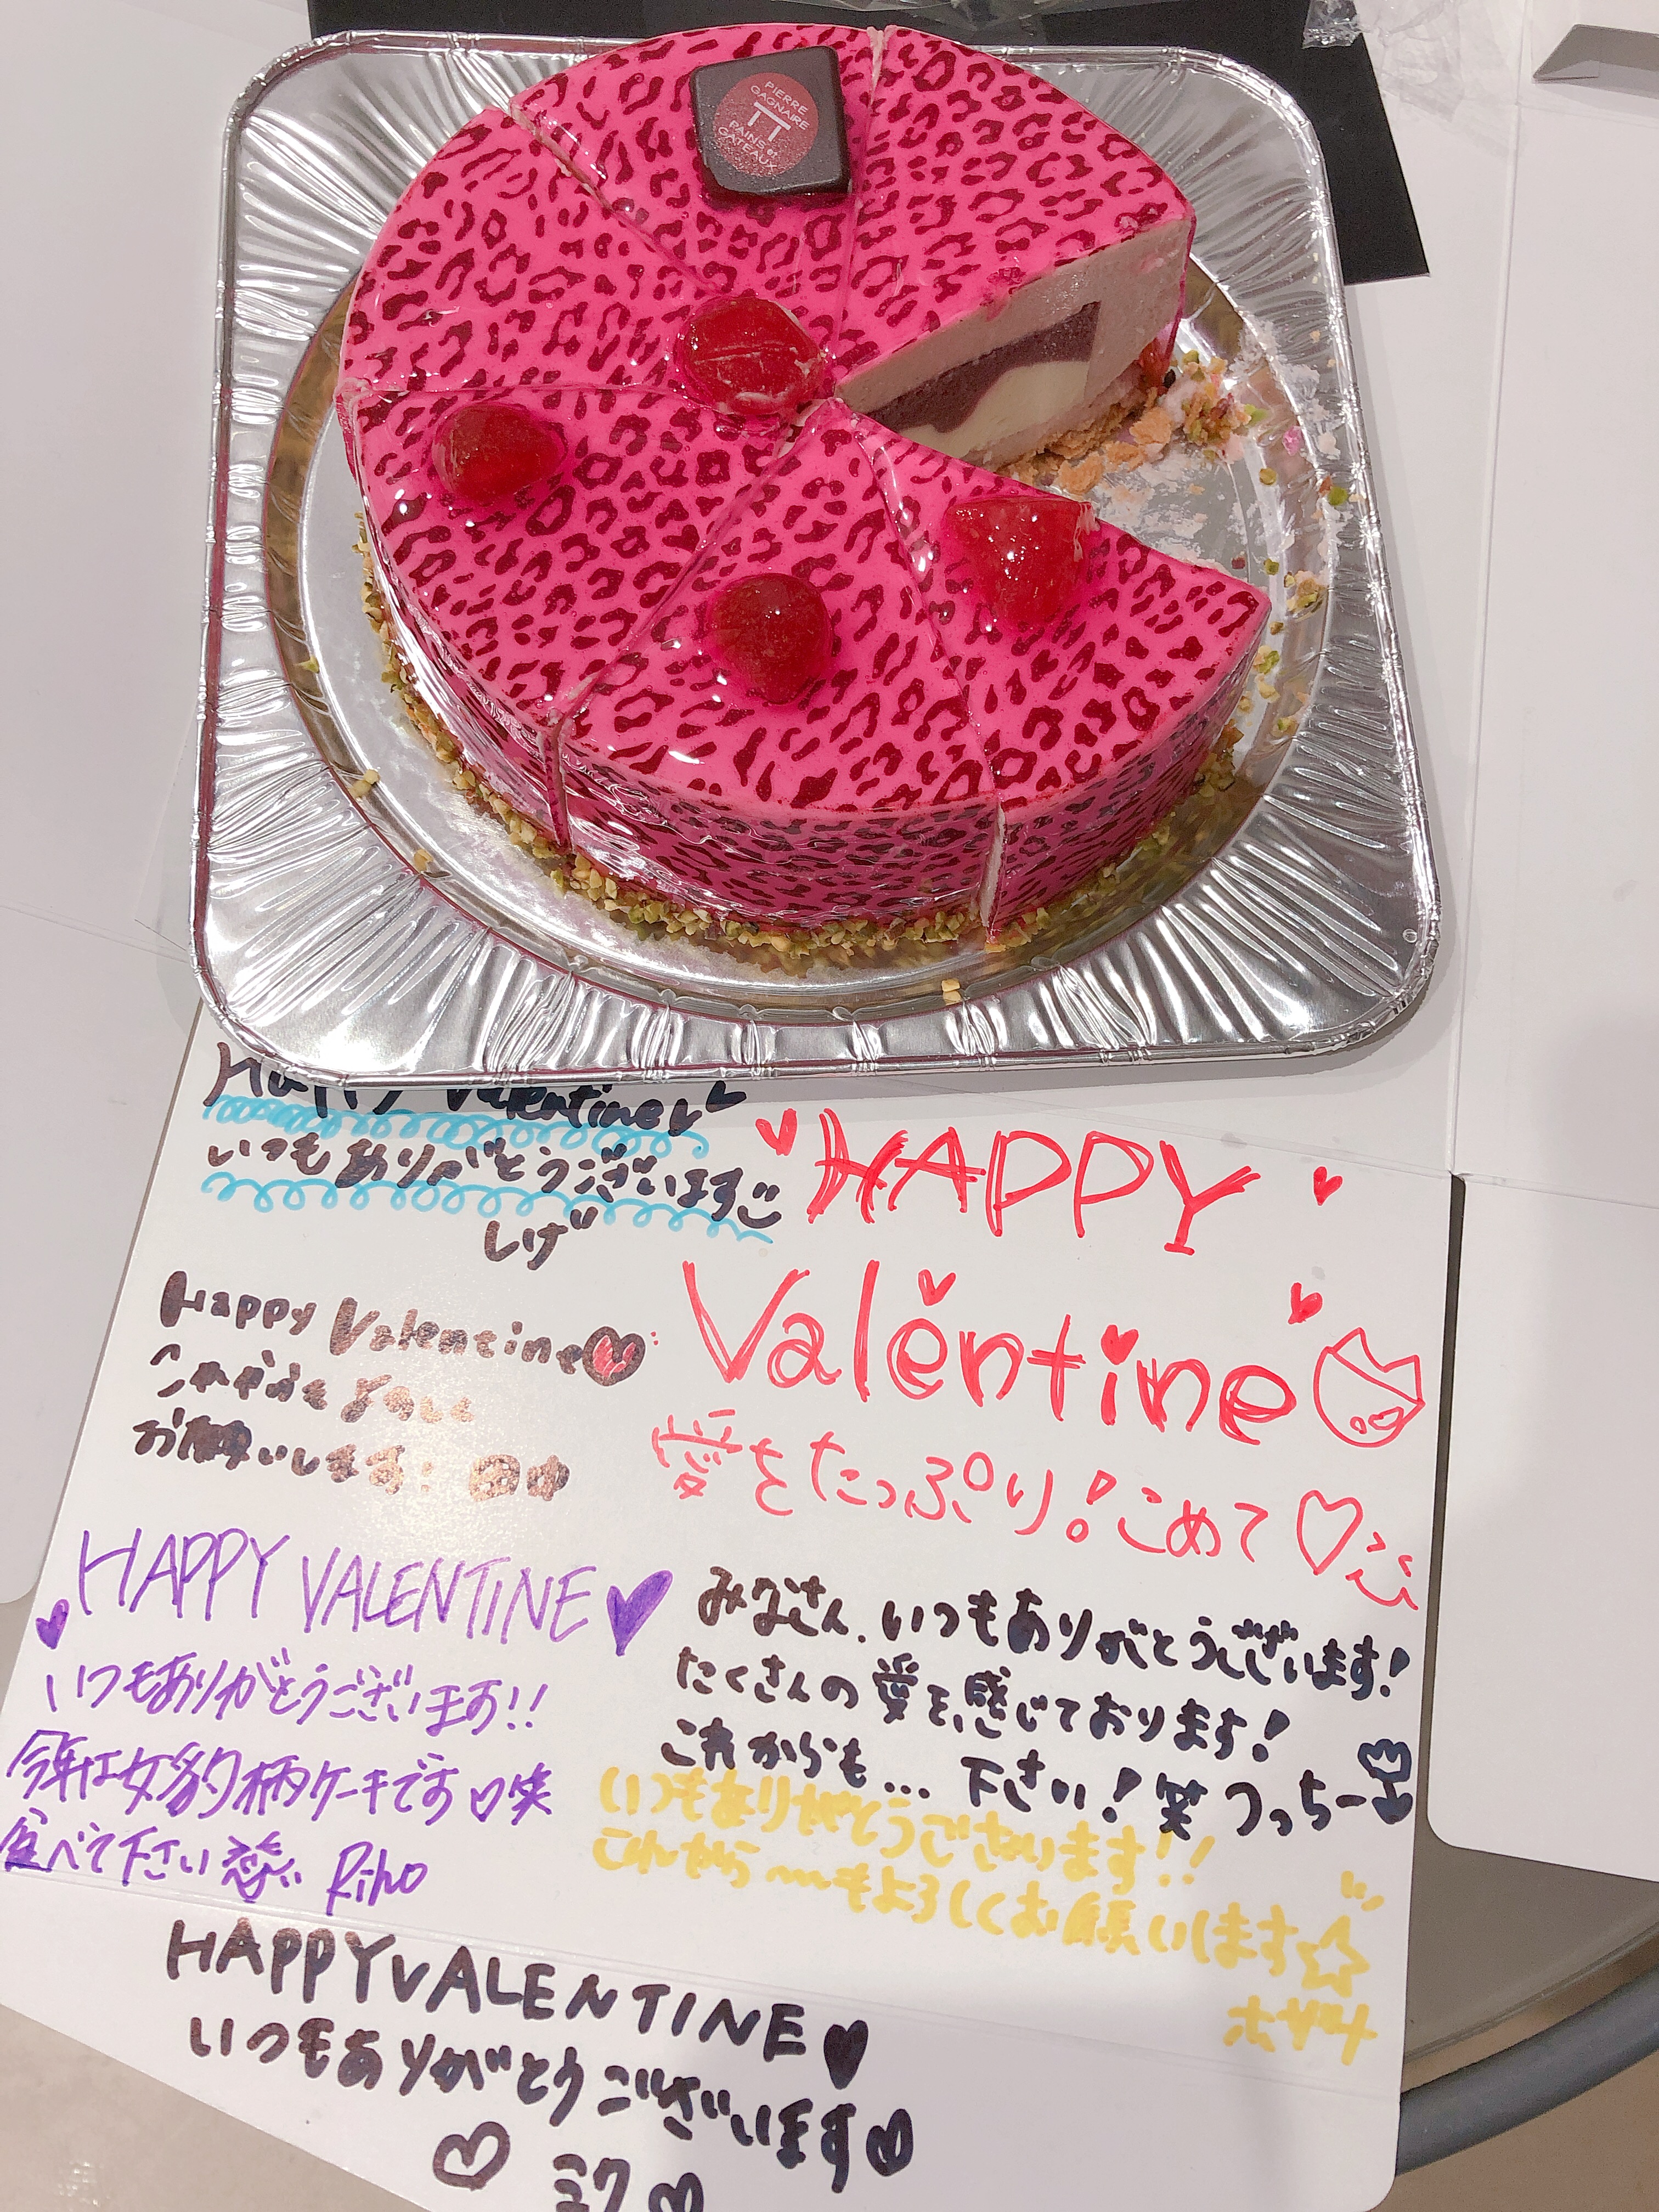 PIERRE
GAGNAIRE
PAINS et
GATEAUX
Happy Valentine
いつもありがとうございます
しげ
Happy Valentine
これからもよろしく
お願いします! 田中
HAPPY VALENTINE
いつもありがとうございます!!
今年は女豹柄ケーキです♡笑
食べて下さい Riho
HAPPY
Valentine
愛をたっぷり!こめて♡
みなさん、いつもありがとうございます!
たくさんの愛を感じております!
これからも... 下さい!笑 つっちー
いつもありがとうございます!!
これから〜〜もよろしくお願いします☆
HAPPY VALENTINE♥
いつもありがとうございます♡
♡ ミク♡